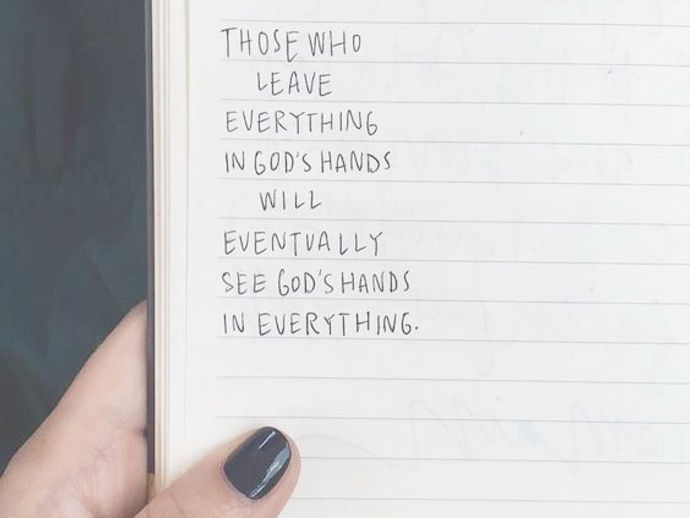 THOSE WHO
LEAVE
EVERYTHING
IN GOD'S HANDS
WILL
EVENTUALLY
SEE GOD'S HANDS
IN EVERYTHING.